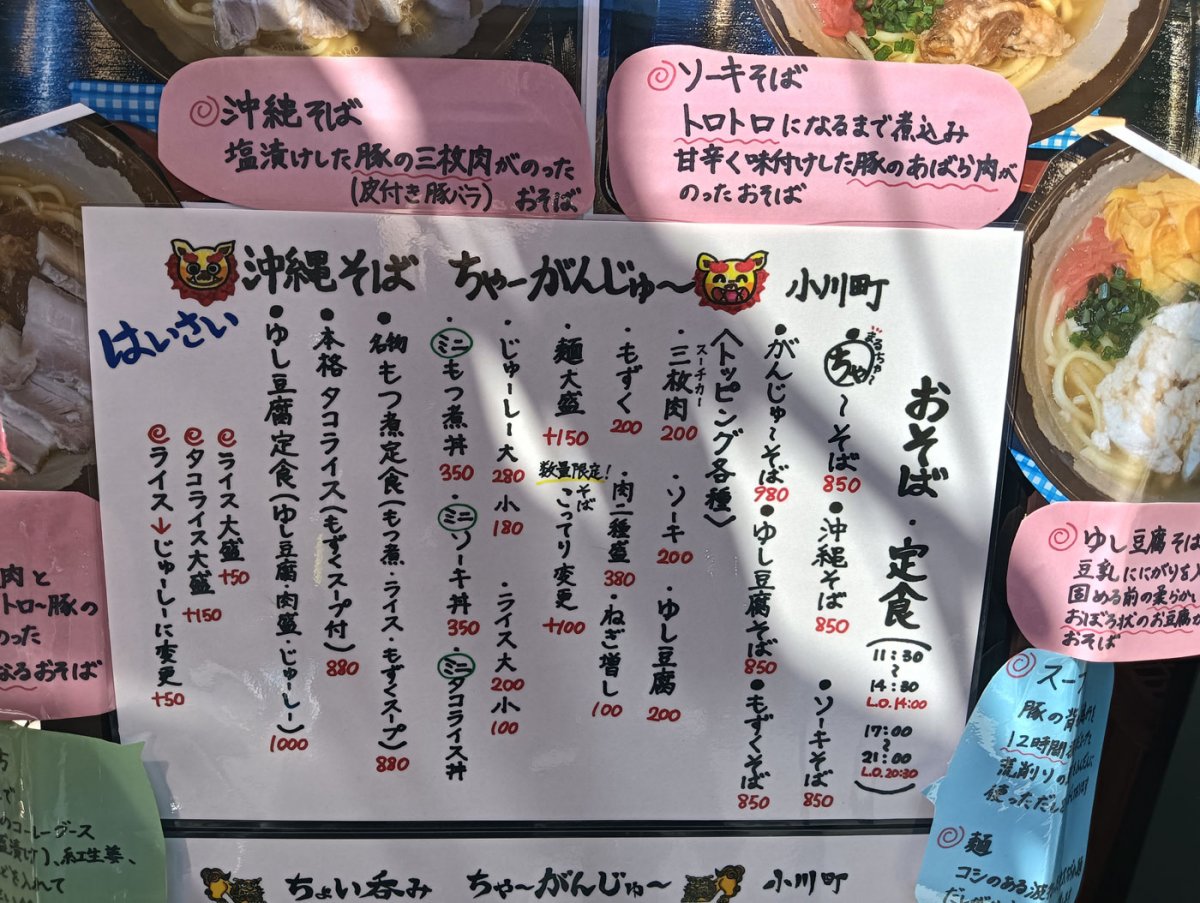 沖縄そば
塩漬けした豚の三枚肉がのった
(皮付き豚バラ) おそば
ソーキそば
トロトロになるまで煮込み
甘辛く味付けした豚のあばら肉が
のったおそば
沖縄そば ちゃーがんじゅ〜 小川町
はいさい
おそば・定食(11:30〜14:30 L.O.14:00 17:00〜21:00 L.O.20:30)
●まるちゃ〜 ちゃ〜そば 850 ●沖縄そば 850 ●ソーキそば 850
●がんじゅ〜そば 980 ●ゆし豆腐そば 850 ●もずくそば 850
〈トッピング各種〉
・三枚肉 スーチカー 200 ・ソーキ 200 ・ゆし豆腐 200
・もずく 200 ・肉二種盛 380 ・ねぎ増し 100
麺大盛 +150 数量限定! そばこってり変更 +100
・じゅーしー大 280 小 180 ・ライス大 200 小 100
ミニもつ煮丼 350 ・ミニソーキ丼 350 ・ミニタコライス丼
●名物もつ煮定食(もつ煮・ライス・もずくスープ) 880
●本格タコライス(もずくスープ付) 880
●ゆし豆腐定食(ゆし豆腐肉盛じゅーしー) 1000
ライス大盛 +50
タコライス大盛 +150
ライス→じゅーしーに変更 +50
肉と
トロ〜豚の
のった
なるおそば
ゆし豆腐そば
豆乳ににがりを入
固める前の柔らか
おぼろ状のお豆腐が
おそば
スープ
豚の背
12時間
荒削りの
使っただし
麺
コシのある波
のコーレーグース
漬け)、紅生姜、
を入れて
ちょい呑み ちゃ〜がんじゅ〜 小川町